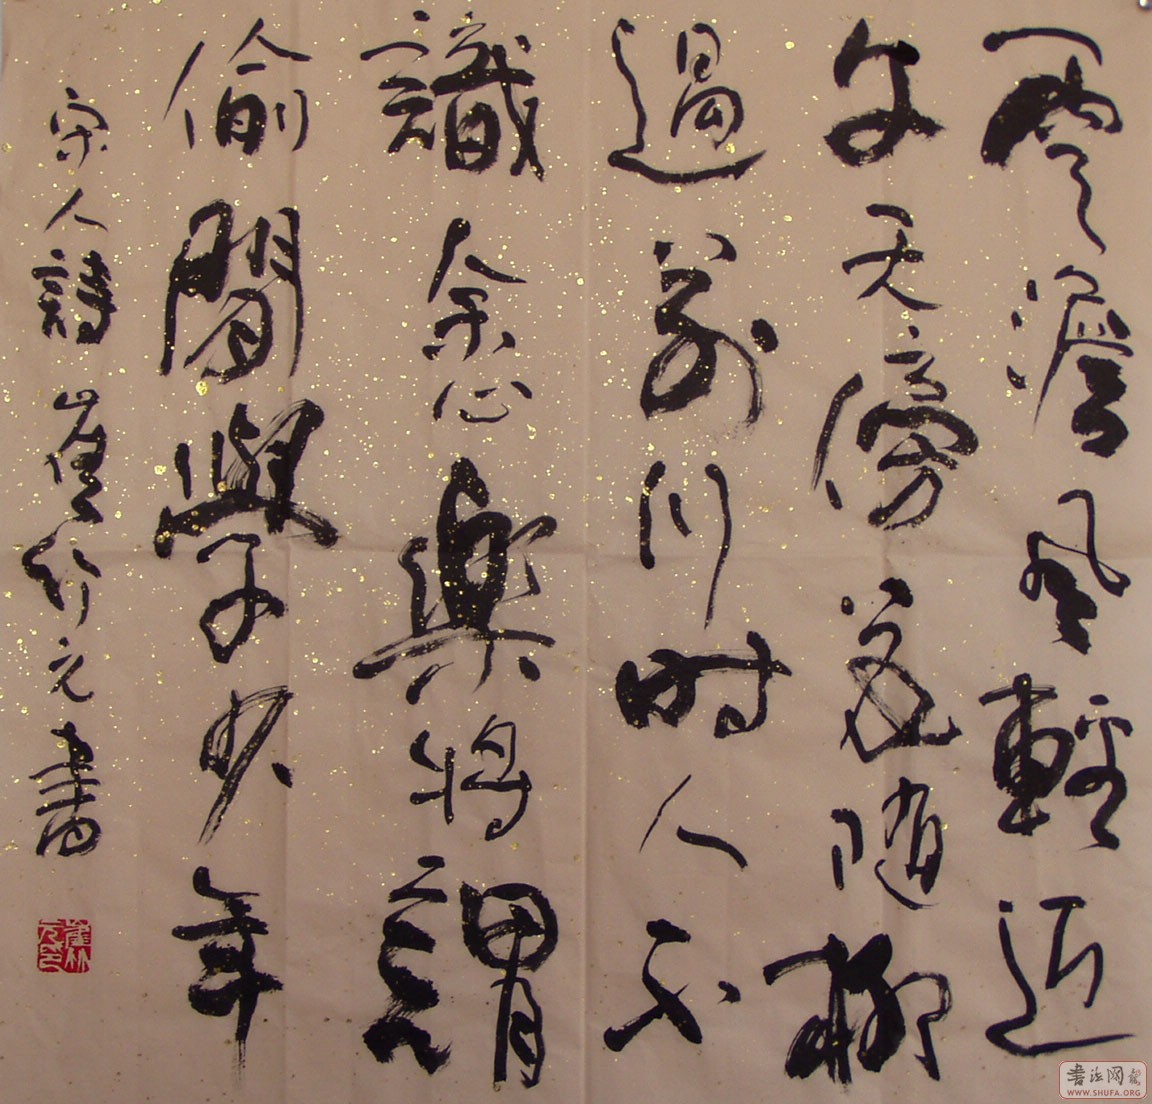 雲澹風輕近
午天傍花随柳
過前川時人不
識余心樂將謂
偷閒學少年
宋人詩 崔林元書
崔林元印
書法网
WWW.SHUFA.ORG